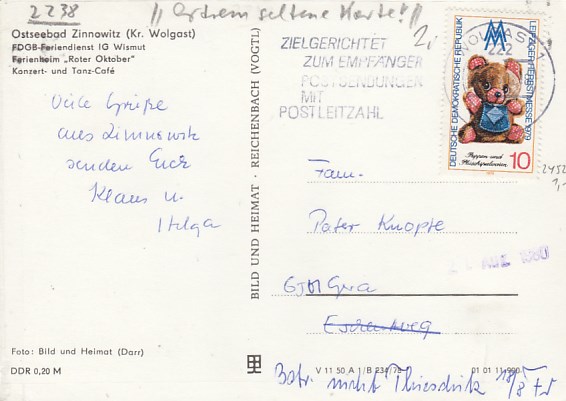 2238 // extrem seltene Karte! //
2,-
Ostseebad Zinnowitz (Kr. Wolgast)
FDGB-Feriendienst IG Wismut
Ferienheim „Roter Oktober"
Konzert- und Tanz-Café
ZIELGERICHTET
ZUM EMPFÄNGER
POSTSENDUNGEN
MIT
POSTLEITZAHL
WOLGAST
222
DEUTSCHE DEMOKRATISCHE REPUBLIK
LEIPZIGER HERBSTMESSE 1979
Puppen und
Plüschspielwaren
10
2452
1,-
Viele Grüße
aus Zinnowitz
senden Euch
Klaus u.
Helga
BILD UND HEIMAT · REICHENBACH (VOGTL)
Fam.
Peter Knopfe
Gera
1980
Foto: Bild und Heimat (Darr)
DDR 0,20 M
V 11 50 A 1/B 234/78
01 01 11 900